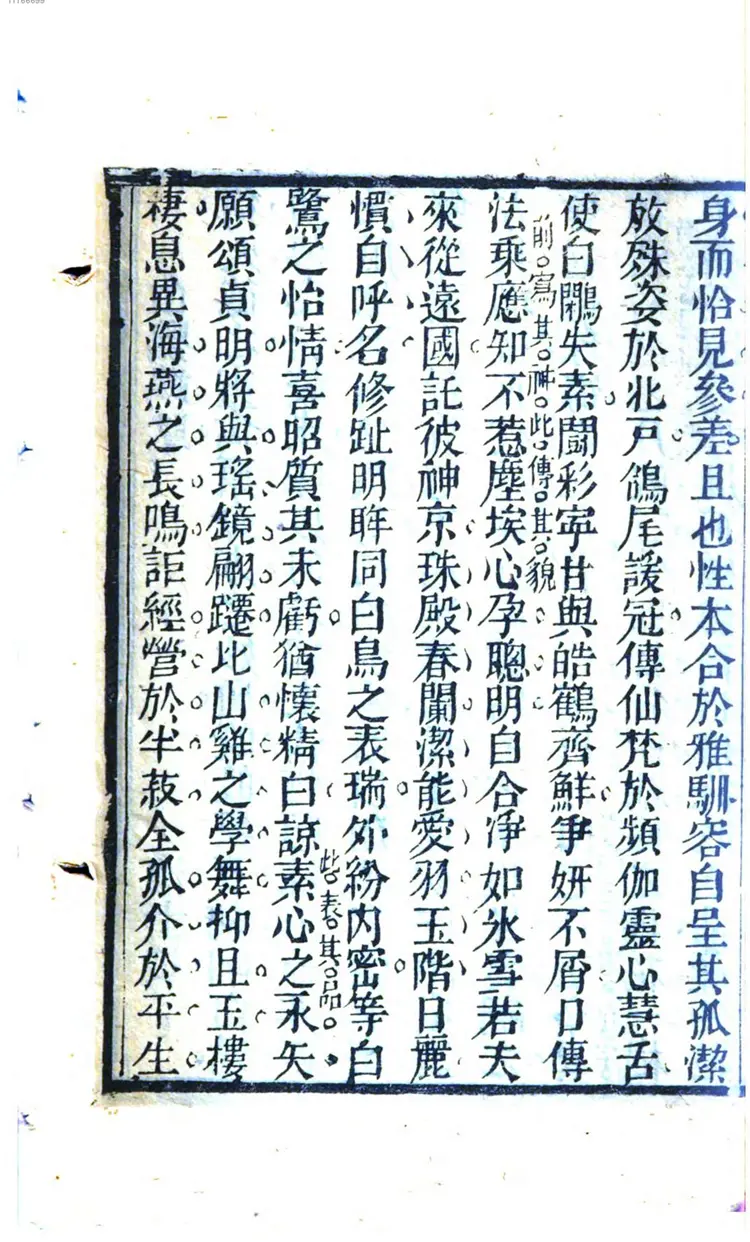 11166699
身而恰見參差且也性本合於雅馴容自呈其孤潔
放殊姿於北戶鴿尾諼冠傳仙梵於頻伽靈心慧舌
使白鷴失素鬬彩寜甘與皓鶴齊鮮爭妍不屑口傳
前寫其神此傳其貌
法乘應知不惹塵埃心孕聰明自合净如氷雪若夫
來從遠國託彼神京珠殿春闌潔能愛羽玉階日麗
慣自呼名修趾明眸同白鳥之表瑞外紛內密等白
此表其品
鷺之怡情喜昭質其未虧猶懷精白諒素心之永矢
願頌貞明將與瑤鏡翩躚比山雞之學舞抑且玉樓
棲息異海燕之長鳴詎經營於半菽全孤介於平生